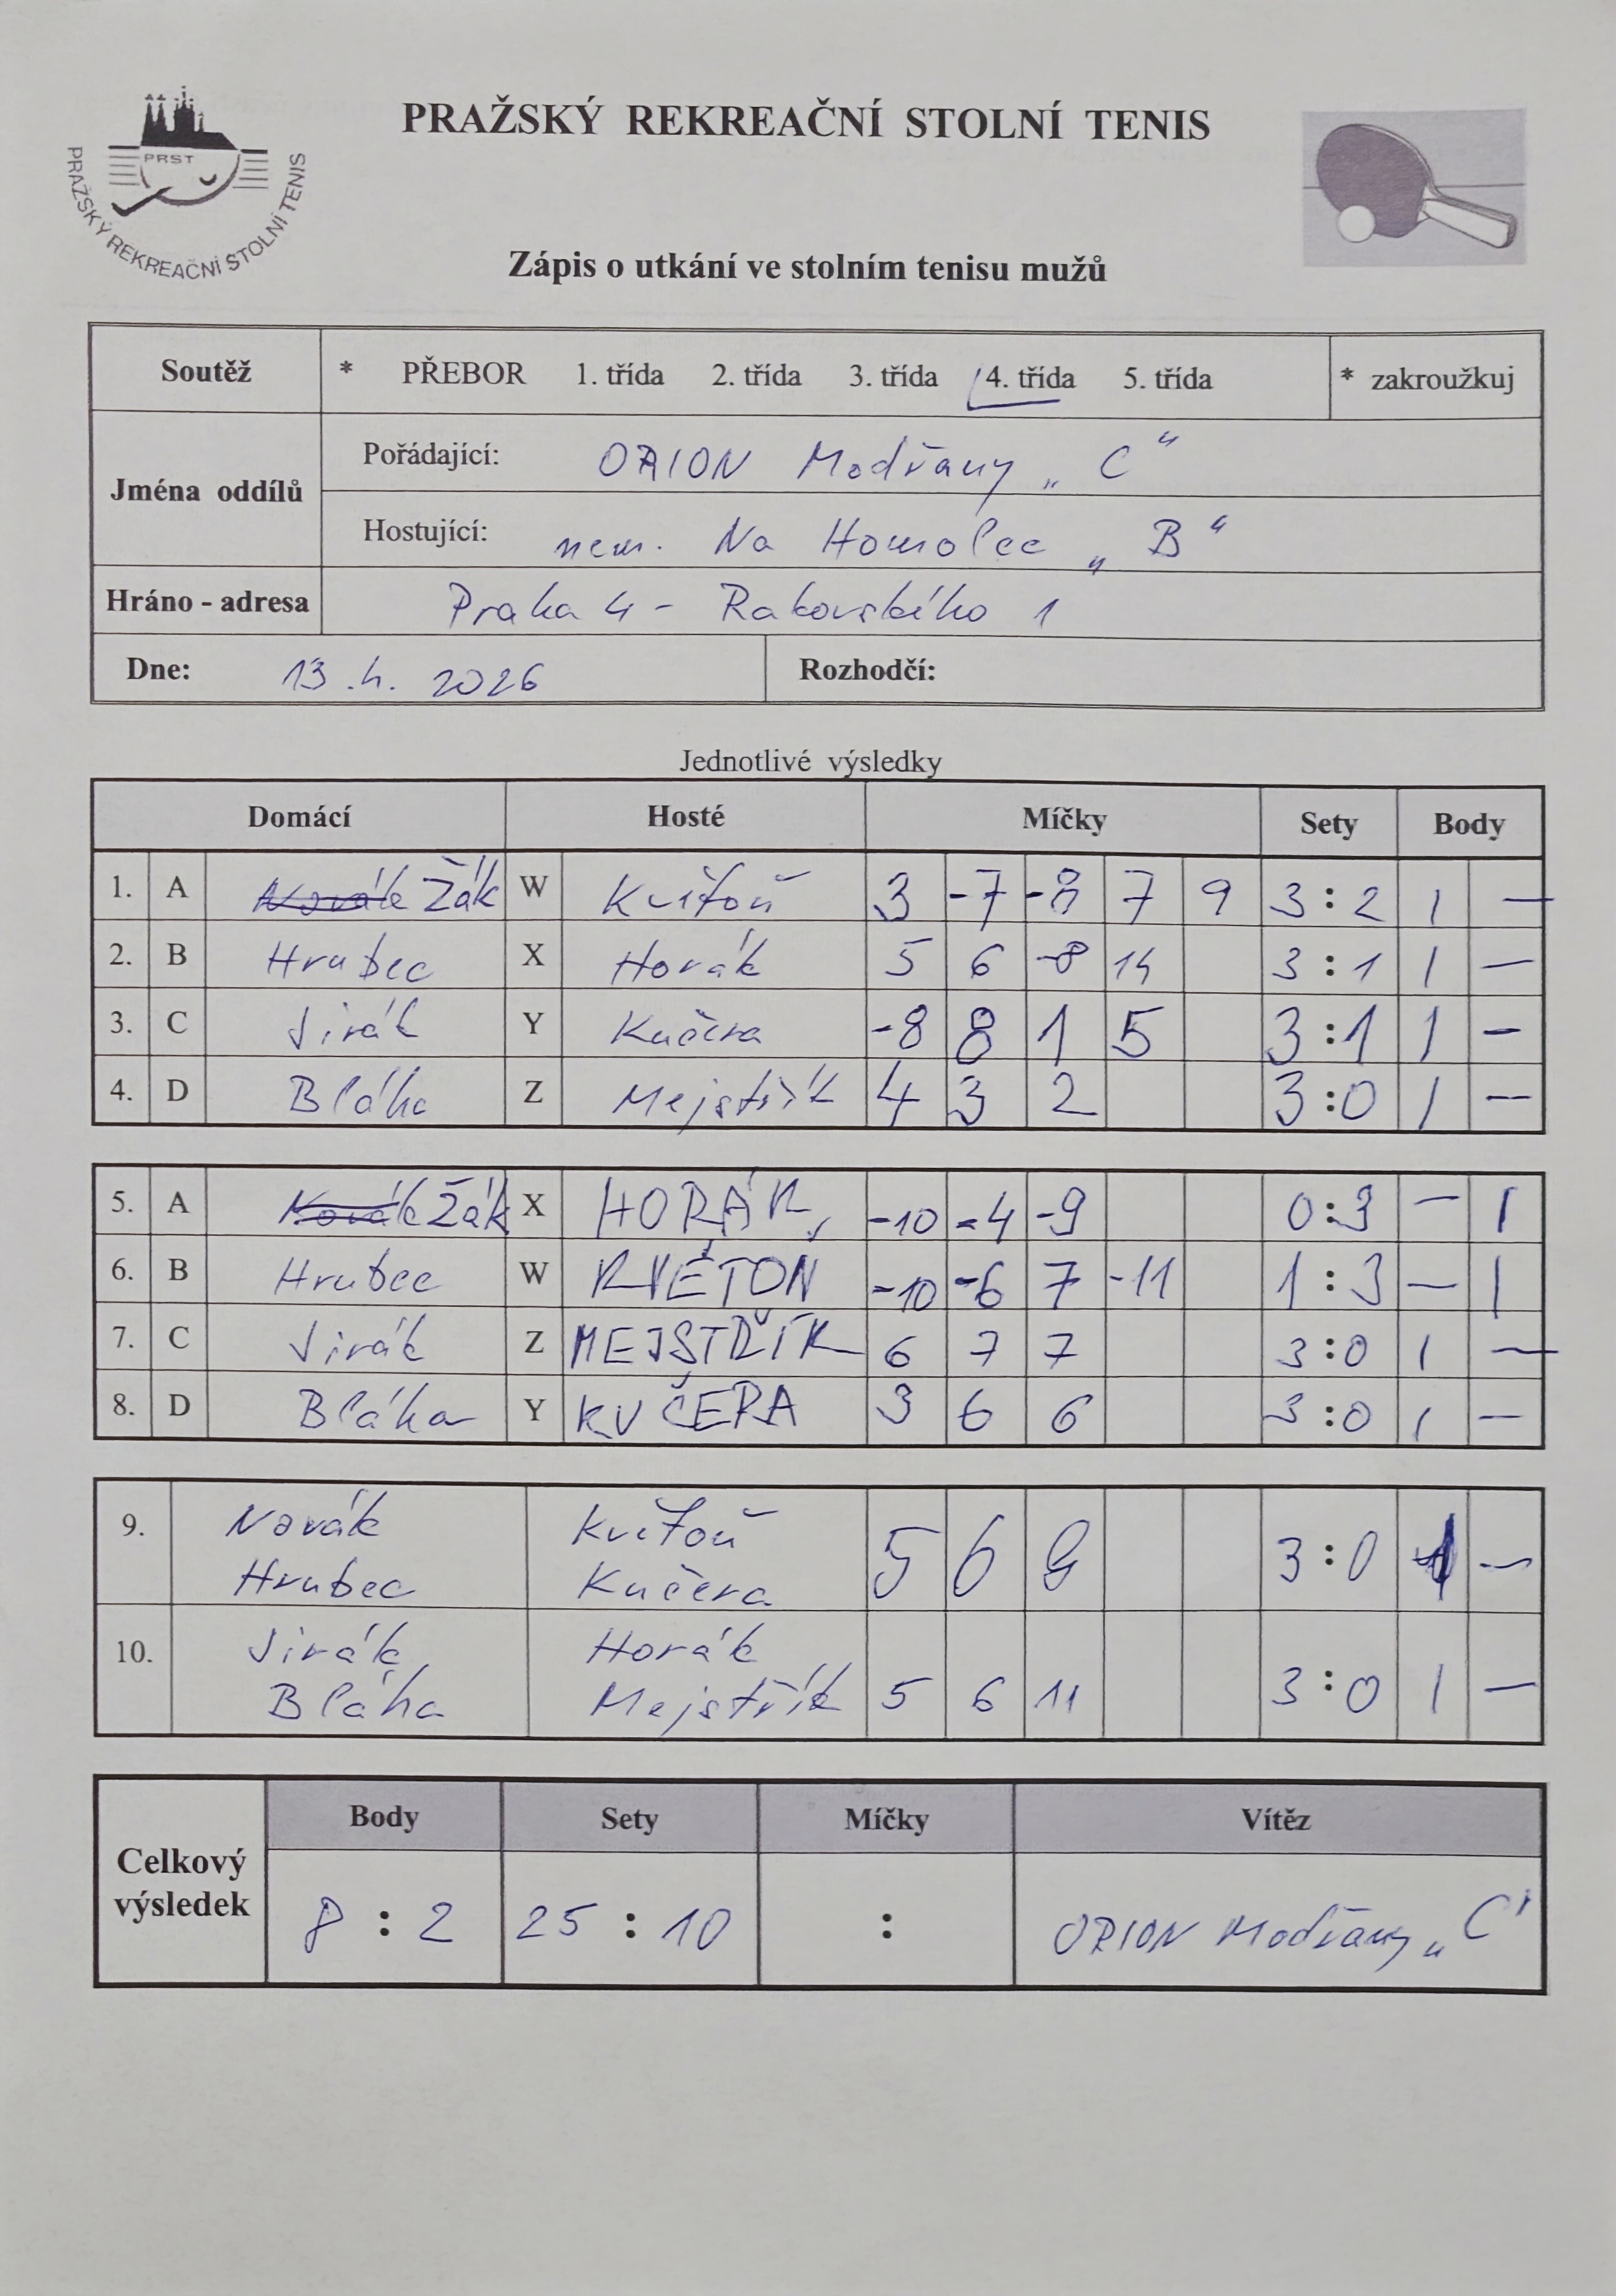 PRAŽSKÝ REKREAČNÍ STOLNÍ TENIS
PRST
PRAŽSKÝ REKREAČNÍ STOLNÍ TENIS
Zápis o utkání ve stolním tenisu mužů
Soutěž * PŘEBOR 1. třída 2. třída 3. třída 4. třída 5. třída * zakroužkuj
Jména oddílů
Pořádající: ORION Modřany „C“
Hostující: nem. Na Homolce „B“
Hráno - adresa Praha 4 - Rakovského 1
Dne: 13.4. 2026 Rozhodčí:
Jednotlivé výsledky
Domácí Hosté Míčky Sety Body
1. A Novák Žák W Květoň 3 -7 -8 7 9 3:2 1 —
2. B Hrubec X Horák 5 6 -8 14 3:1 1 —
3. C Jirák Y Kučera -8 8 1 5 3:1 1 —
4. D Bláha Z Mejstřík 4 3 2 3:0 1 —
5. A Novák Žák X HORÁK -10 -4 -9 0:3 — 1
6. B Hrubec W KVĚTOŇ -10 -6 7 -11 1:3 — 1
7. C Jirák Z MEJSTŘÍK 6 7 7 3:0 1 —
8. D Bláha Y KUČERA 3 6 6 3:0 1 —
9. Novák Květoň
Hrubec Kučera 5 6 9 3:0 1 —
10. Jirák Horák
Bláha Mejstřík 5 6 11 3:0 1 —
Body Sety Míčky Vítěz
Celkový výsledek 8 : 2 25 : 10 : ORION Modřany „C“